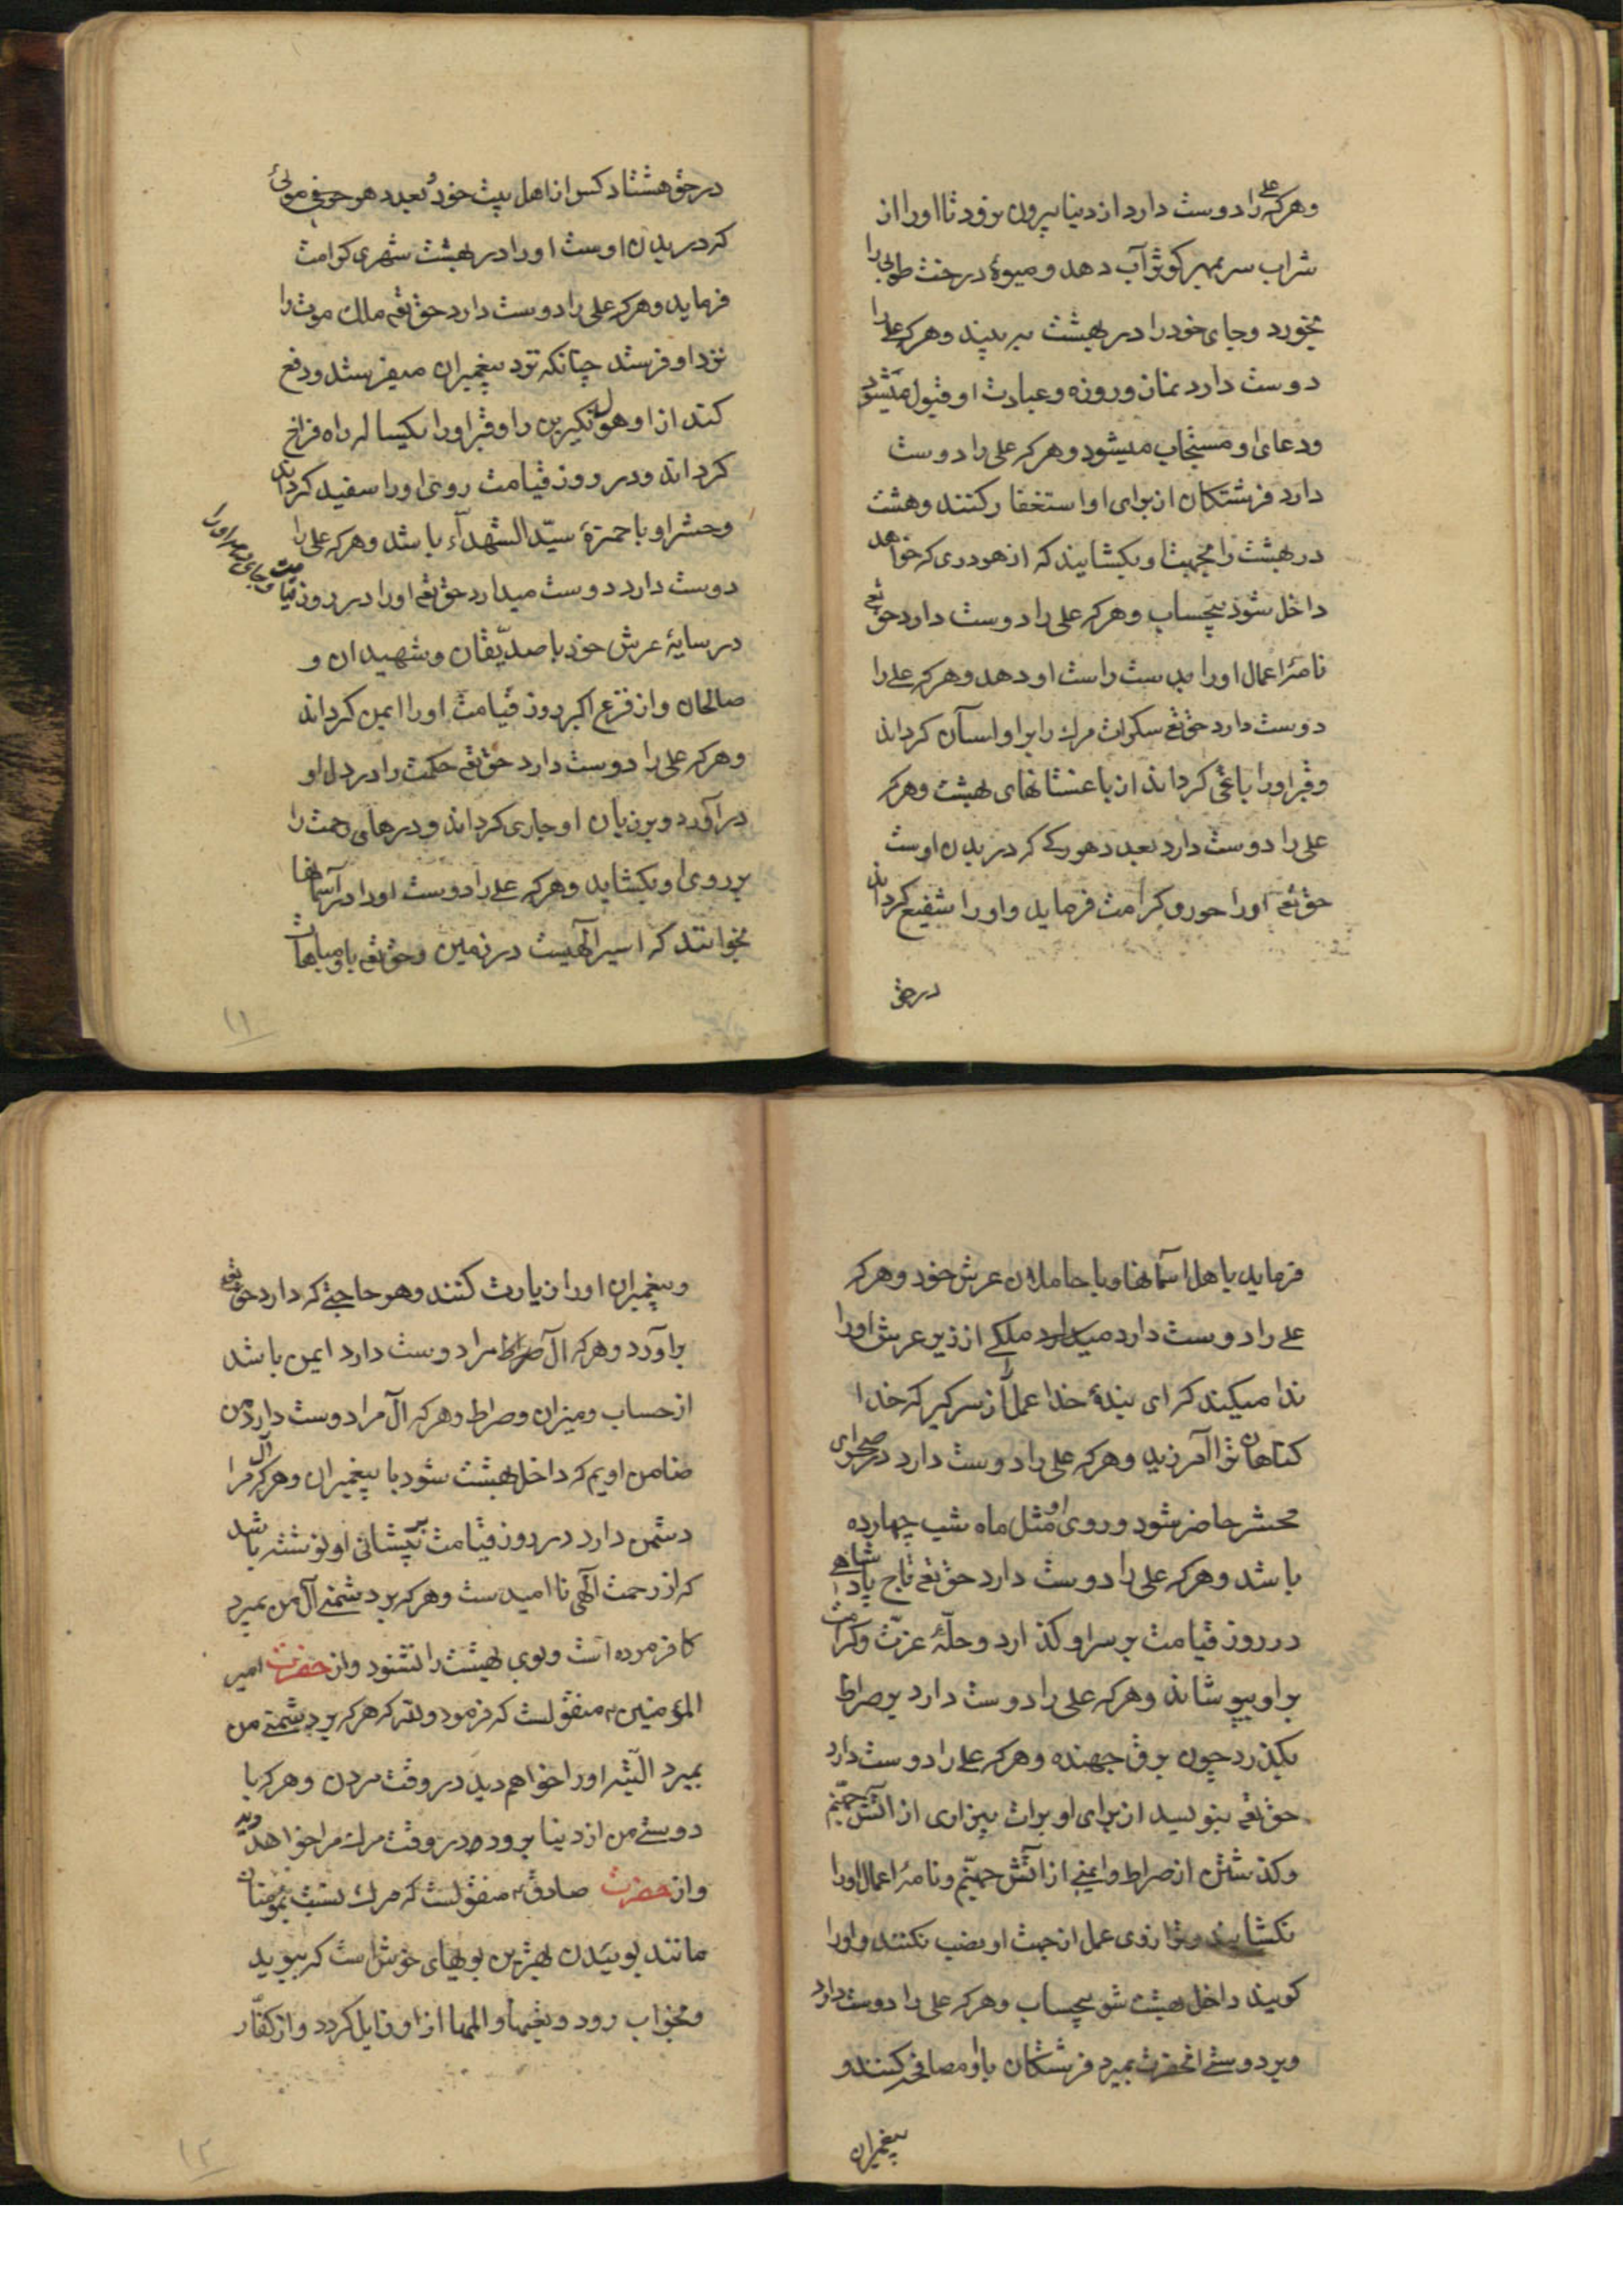 وهرکه علی را دوست دارد از دنیا بیرون نرود تا او را از
شراب سربمهر کوثر آب دهد و میوهٔ درخت طوبی را
بخورد و جای خود را در بهشت به بیند وهرکه علی را
دوست دارد نماز و روزه و عبادت او قبول میشود
ودعای او مستجاب میشود وهرکه علی را دوست
دارد فرشتکان از برای او استغفار کنند وهشت
در بهشت را بجهت او بکشایند که از هر دری که خواهد
داخل شود بیحساب وهرکه علی را دوست دارد حق تع
نامهٔ اعمال او را بدست راست او دهد وهرکه علی را
دوست دارد حق تع سکرات مرک را بر او اسان کرداند
وقبر او را باغی کرداند از باغستانهای بهشت وهرکه
علی را دوست دارد بعدد هر رکے که در بدن اوست
حق تع او را حور و کرامت فرماید و او را شفیع کرداند
در حق
در حق هشتاد کس از اهل بیت خود و بعدد هر موئی
که در بدن اوست او را در بهشت شهری کرامت
فرماید وهرکه علی را دوست دارد حق تع ملک موت را
نزد او فرستد چنانکه نزد پیغمبران میفرستد ودفع
کند از او هول نکیرین را وقبر او را یکساله راه فراخ
کرداند ودر روز قیامت روی او را سفید کرداند
وحشر او با حمزهٔ سیّد الشهدآء باشد وهرکه علی را
دوست دارد دوست میدارد حق تع او را در روز قیامت وجای دهد او را
در سایهٔ عرش خود با صدّیقان وشهیدان و
صالحان واز فزع اکبر روز قیامت او را ایمن کرداند
وهرکه علی را دوست دارد حق تع حکمت را در دل او
درآورد وبر زبان او جاری کرداند ودرهای رحمت را
بر روی او بکشاید وهرکه علی را دوست او را در آسمانها
بخوانند که اسیر آلهیست در زمین وحق تع با و مباهات
۱۱
فرماید با هل اسمانها وبا حاملان عرش خود وهرکه
علی را دوست دارد ملکے از زیر عرش او را
ندا میکند که ای بندهٔ خدا عمل را از سر کیر که خدا
کناهان ترا آمرزید وهرکه علی را دوست دارد در صحرای
محشر حاضر شود وروی او مثل ماه شب چهارده
باشد وهرکه علی را دوست دارد حق تع تاج پادشاهی
در روز قیامت بر سر او کذارد وحلّهٔ عزّت وکرامت
بر او بپوشاند وهرکه علی را دوست دارد بر صراط
بکذرد چون برق جهنده وهرکه علی را دوست دارد
حق تع بنویسد از برای او برات بیزاری از آتش جهنّم
وکذشتن از صراط وایمنی از آتش جهنّم ونامهٔ اعمال او را
نکشایند وترازوی عمل از جهت او نصب نکنند واو را
کویند داخل بهشت شو بیحساب وهرکه علی را دوست دارد
وبر دوستی انحضرت بمیرد فرشتکان با او مصافحه کنند و
پیغمبران
وپیغمبران او را زیارت کنند وهر حاجتے که دارد حق تع
برآورد وهرکه آل مرا دوست دارد ایمن باشد
از حساب ومیزان وصراط وهرکه آل مرا دوست دارد من
ضامن اویم که داخل بهشت شود با پیغمبران وهرکه آل مرا
دشمن دارد در روز قیامت بر پیشانی او نوشته باشد
که از رحمت آلهی ناامیدست وهرکه بر دشمنے آل من بمیرد
کافر مرده است وبوی بهشت را نشنود واز حضرت امیر
المؤمنین منقولست که فرمود هرکه بر دشمنے من
بمیرد البته او را خواهم دید در وقت مردن وهرکه با
دوستے من از دنیا برود در وقت مرک مرا خواهد دید
واز حضرت صادق منقولست که مرک نسبت بمؤمنان
مانند بوییدن بهترین بویهای خوش است که ببوید
وبخواب رود وتعبها والمها از او زایل کردد واز کفّار
۱۲